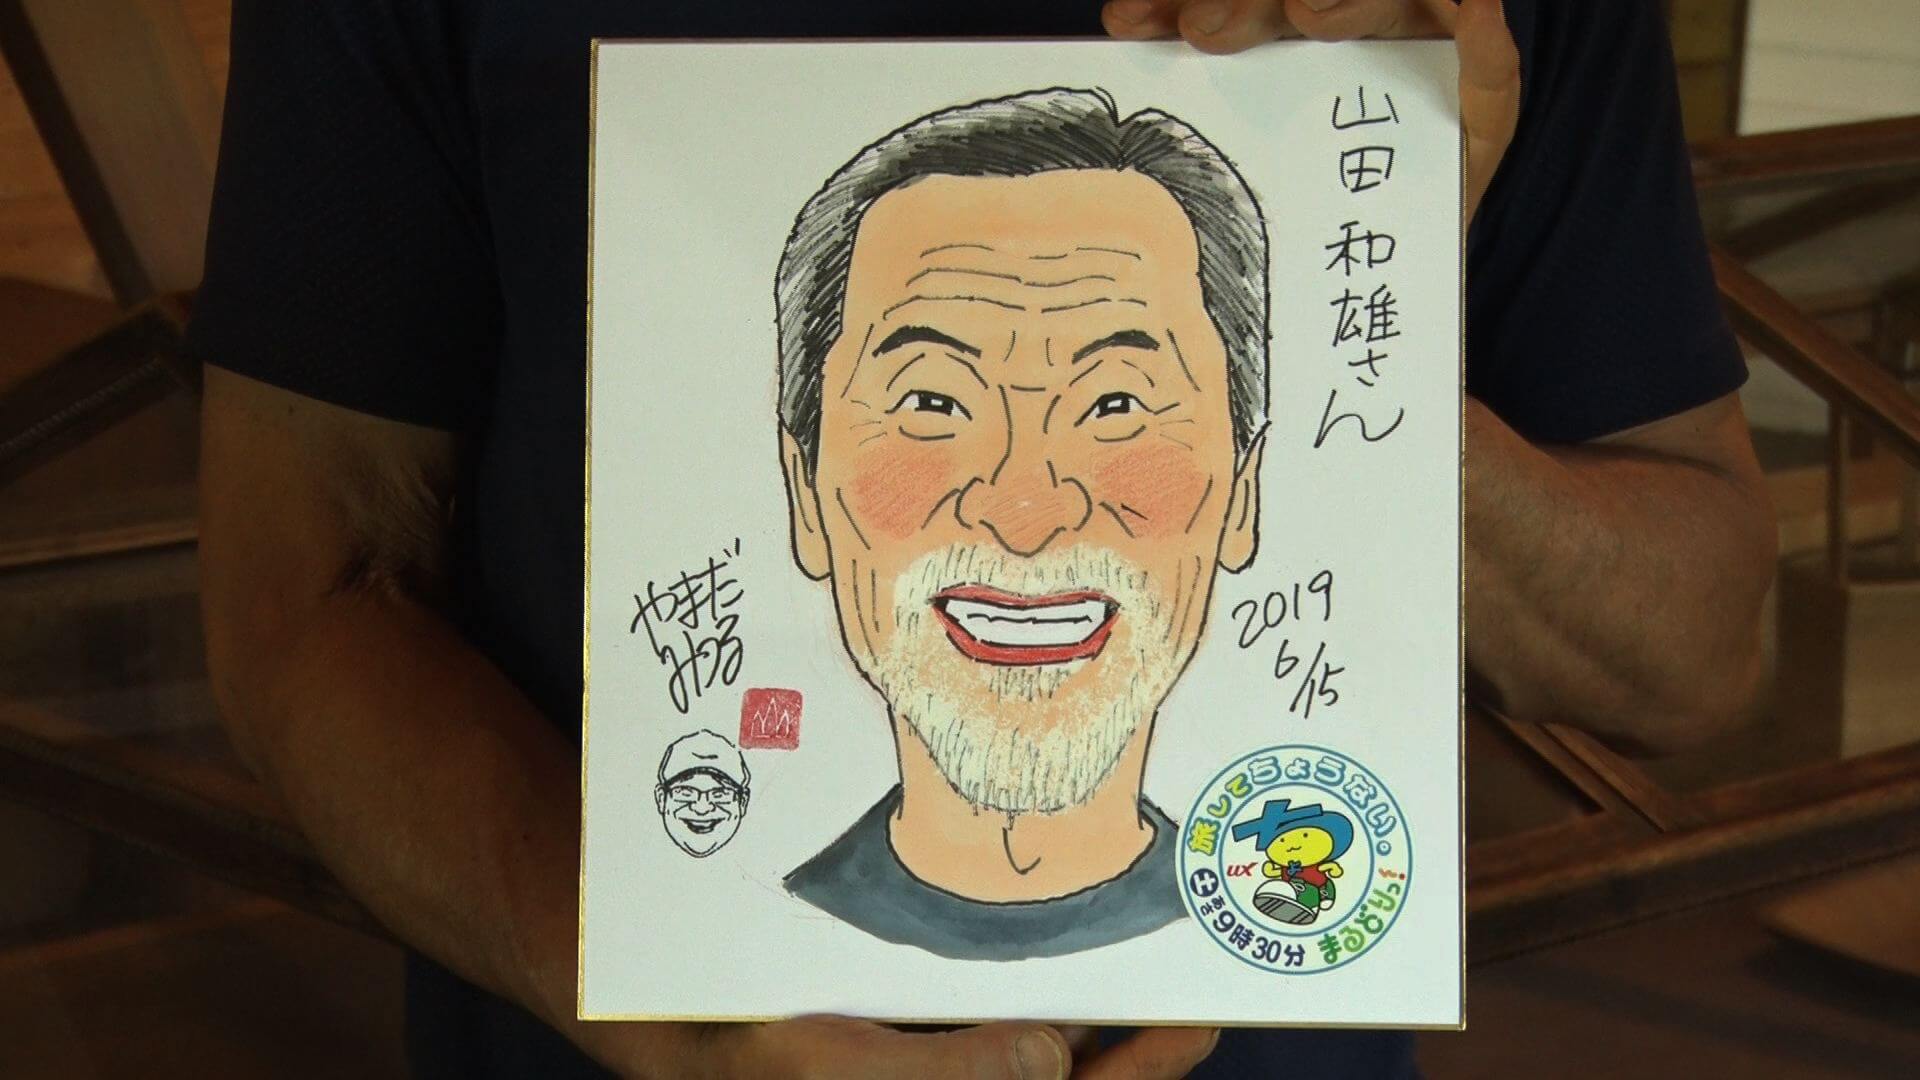 山田和雄さん
やまだ
みつる
2019
6/15
旅してちょうない。
まるどりっ!
UX
土 さあ 9時30分